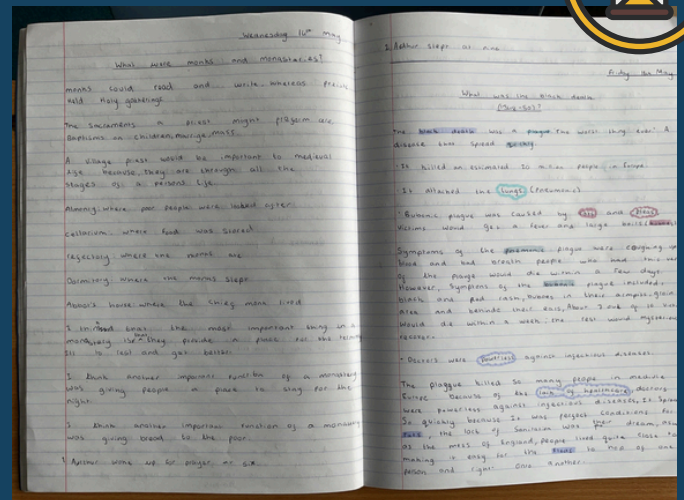 Wednesday 16th May
What were monks and monasteries?
monks could read and write whereas
held holy gatherings
The Sacraments a priest might
Baptisms on children, marrige, mass.
A village priest would be important to medieval
age because, they are through all the
stages of a persons life
Almonry: where poor people were looked after
cellarium: where food was stored
where the monks
Dormitory: where the monks slept
Abbot's house: where the chief monk lived
the most important thing in a
monastery is they provide a place for the
to rest and get better.
I think another important function of a monastery
was giving people a place to stay for the
night.
I think another important function of a monastery
was giving bread to the poor.
1. Arthur woke up for prayer at six
2. Arthur slept at nine
Friday May
What was the black death
The black death was a plague. The worst thing ever! A
disease that spread
· It killed an estimated people in Europe
· It attacked the lungs (pneumonic)
· Bubonic plague was caused by and fleas
victims would get a fever and large boils
Symptoms of the pnemonic plague were coughing up
blood and bad breath people who had this
of the plauge would die within a few days.
However, symptoms of the bubonic plague included,
black and red rash, buboes in their armpits, groin
area and behinde their ears, About out of
would die within a week, the rest would
recover.
· Doctors were powerless against infectious diseases.
The plaggue killed so many people in
Europe because of the lack of healthcare, doctors
were powerless against infectious diseases, It
So quickly because it was perfect conditions for
rats, the lack of Sanitation was their dream,
as the mess of England, people lived quite close to
making it easy for the fleas to hop of one
person and right onto another.